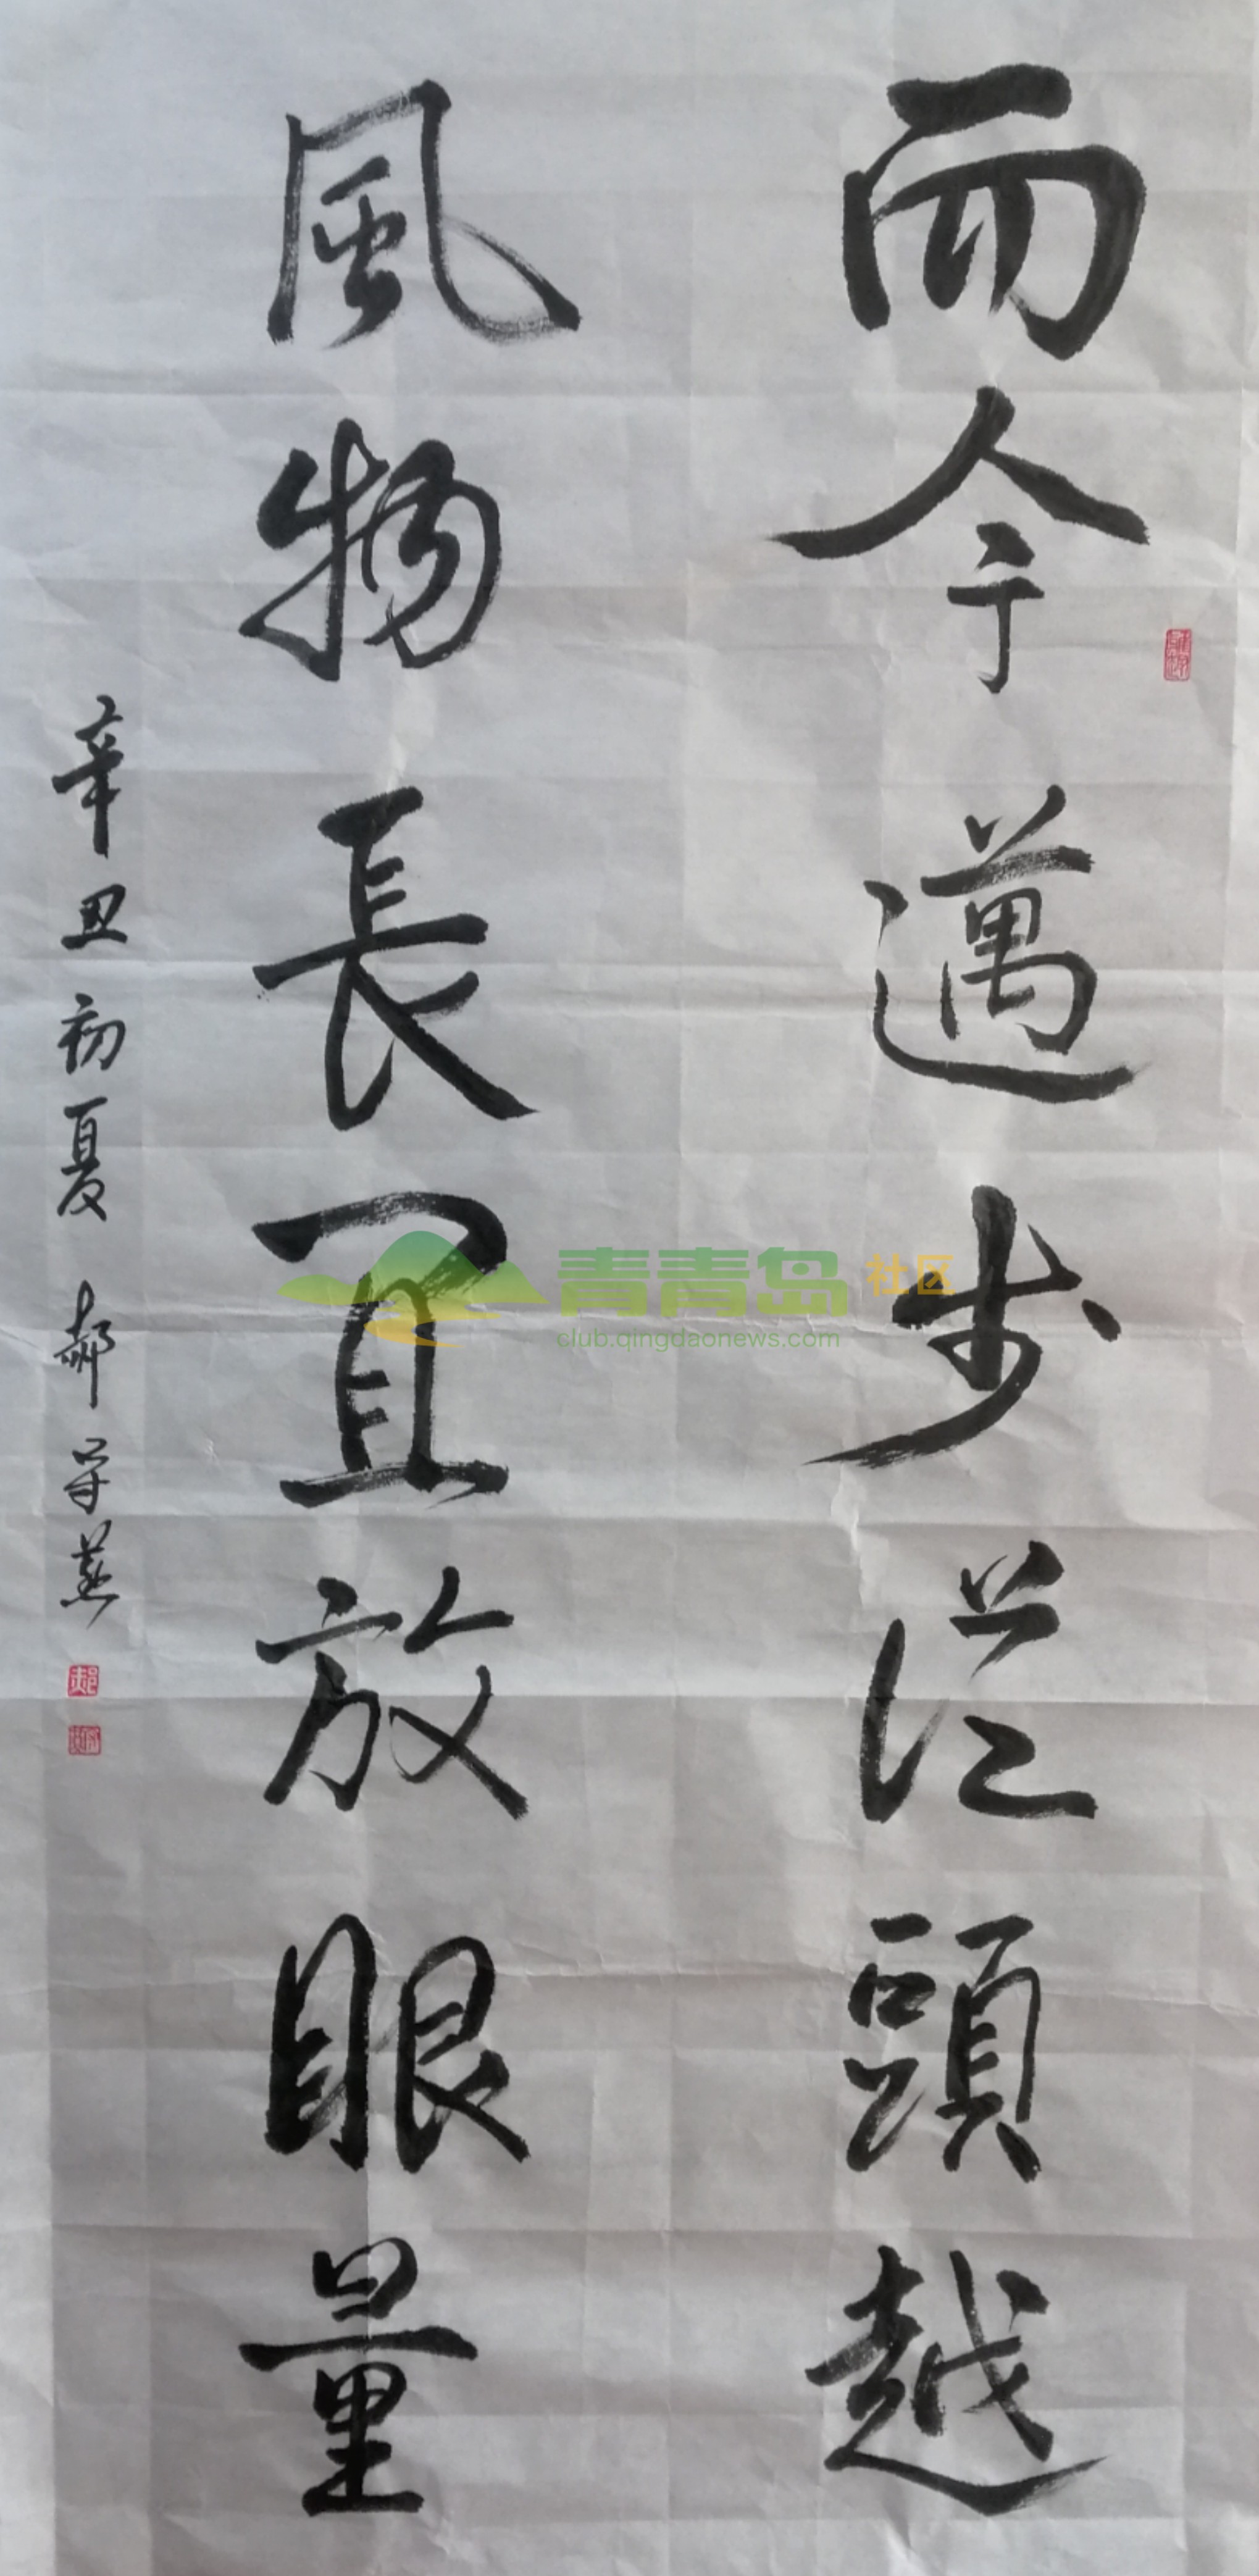 而今邁步從頭越
風物長宜放眼量
辛丑初夏 郝守燕
青青岛社区
club.qingdaonews.com